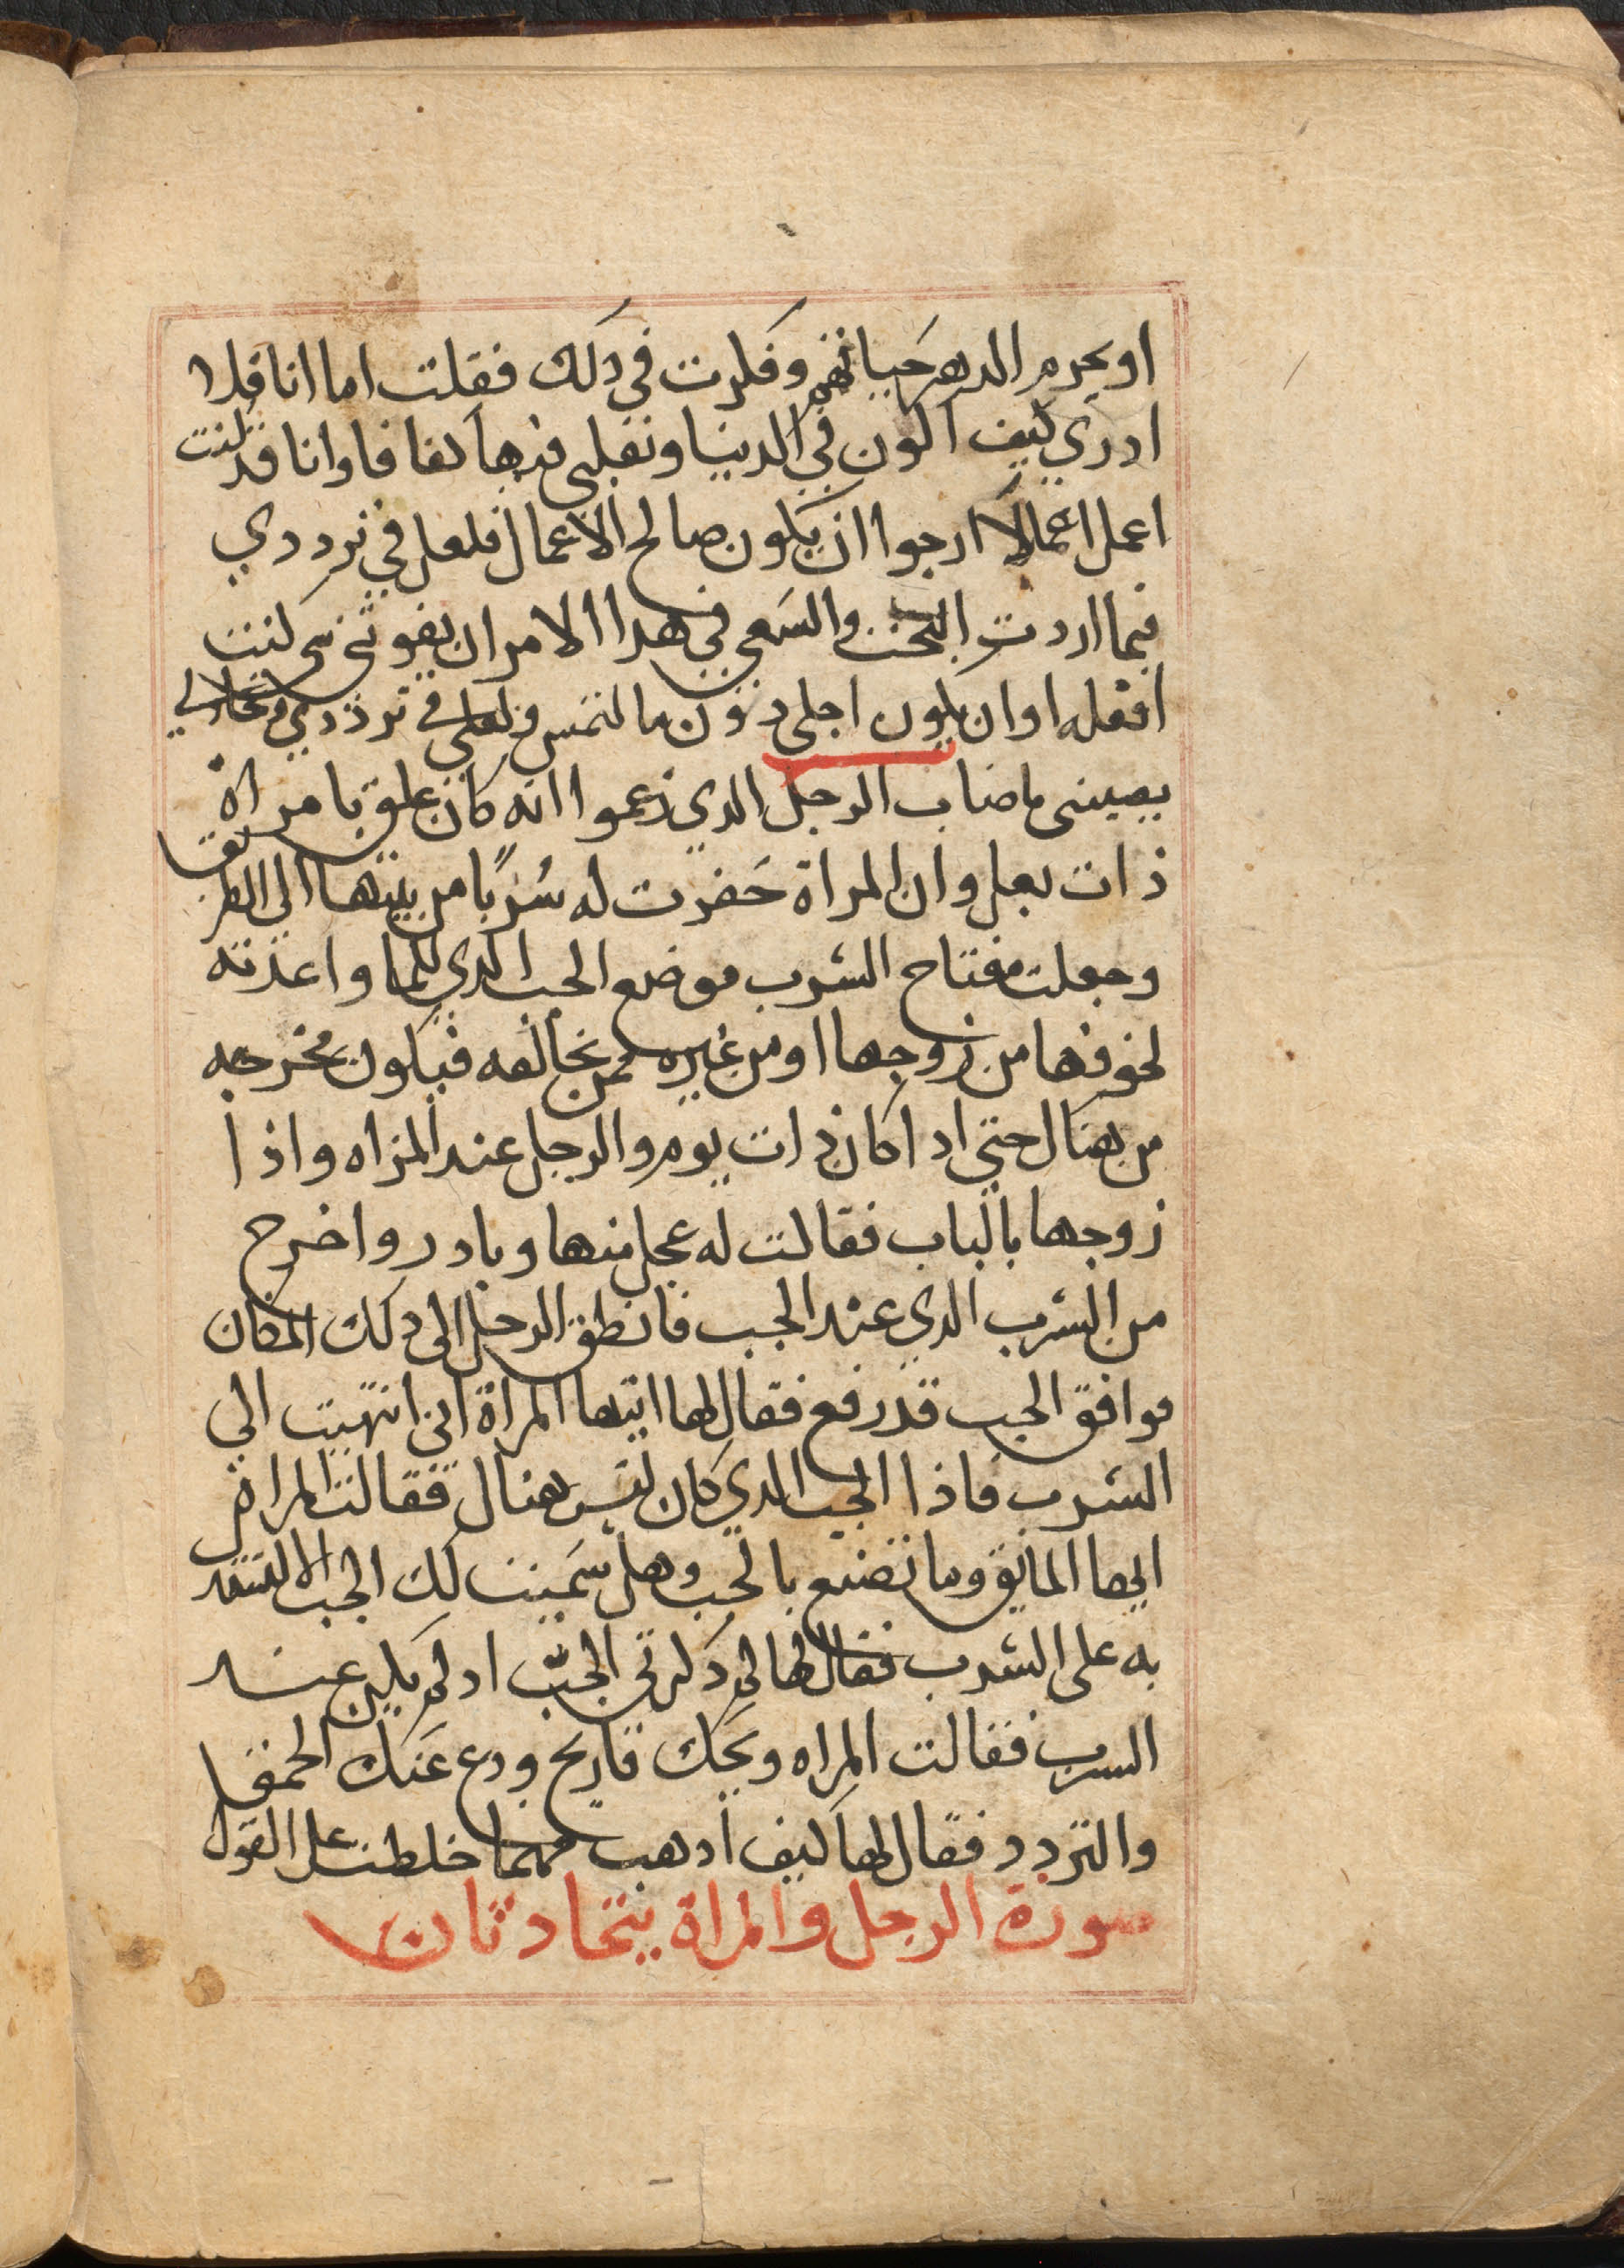 او يحرم الدهر حياتهم وفكرت في ذلك فقلت اما انا فلا
ادري كيف اكون في الدنيا وتقلبى فيها كفافا وانا قد كنت
اعمل اعمالا ارجوا ان يكون صالح الاعمال فلعل في ترددي
فيما اردت البحث والسعي في هدا الامر ان يفوتني شي كنت
افعله او ان يكون اجلي دون ما التمس ولعلي في ترددي
يصيبنى ماصاب الرجل الدي زعموا انه كان علق بامراة
ذات بعل وان المراة حفرت له سربًا من بيتها الى الطريق
وجعلت مفتاح السرب موضع الجب الدي للما واعدته
لخوفها من زوجها او من غيره ممن تخالفه فيكون مخرجه
من هناك حتي ادا كان ذات يوم والرجل عند المراه واذا
زوجها بالباب فقالت له عجل منها وبادر واخرج
من السرب الدي عند الجب فانطق الرجل الى دلك المكان
موافق الجب قد رفع فقال لها ايتها المراة اني انتهيت الي
السرب فاذا الجب الدي كان ليس هناك فقالت المراة
ايها المايق وما تصنع بالجب وهل سميت لك الجب الا لتستدل
به على السرب فقال لها لم دكرتي الجب ادلم يكن عند
السرب فقالت المراه ويحك فاريح ودع عنك الحمق
والتردد فقال لها كيف ادهب مهما خلطت على القول
صورة الرجل والمراة يتحادثان